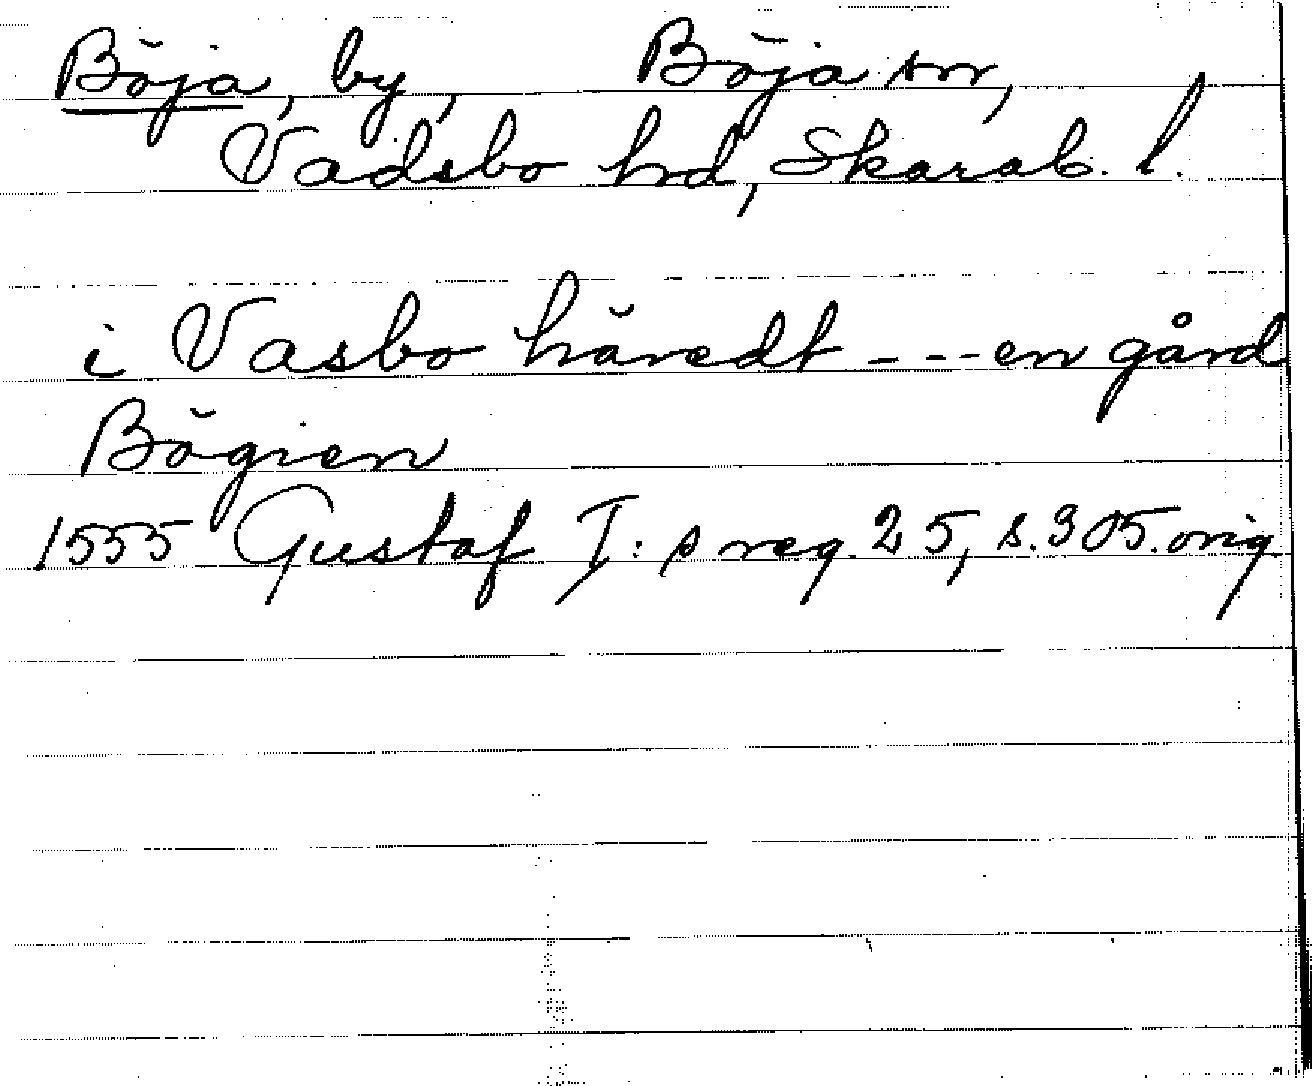 Böja, by, Böja sn,
Vadsbo hd, Skarab. l.
i Vasbo häredt - - - en gård
Bögien
1555 Gustaf I:s reg. 25, s. 305. orig